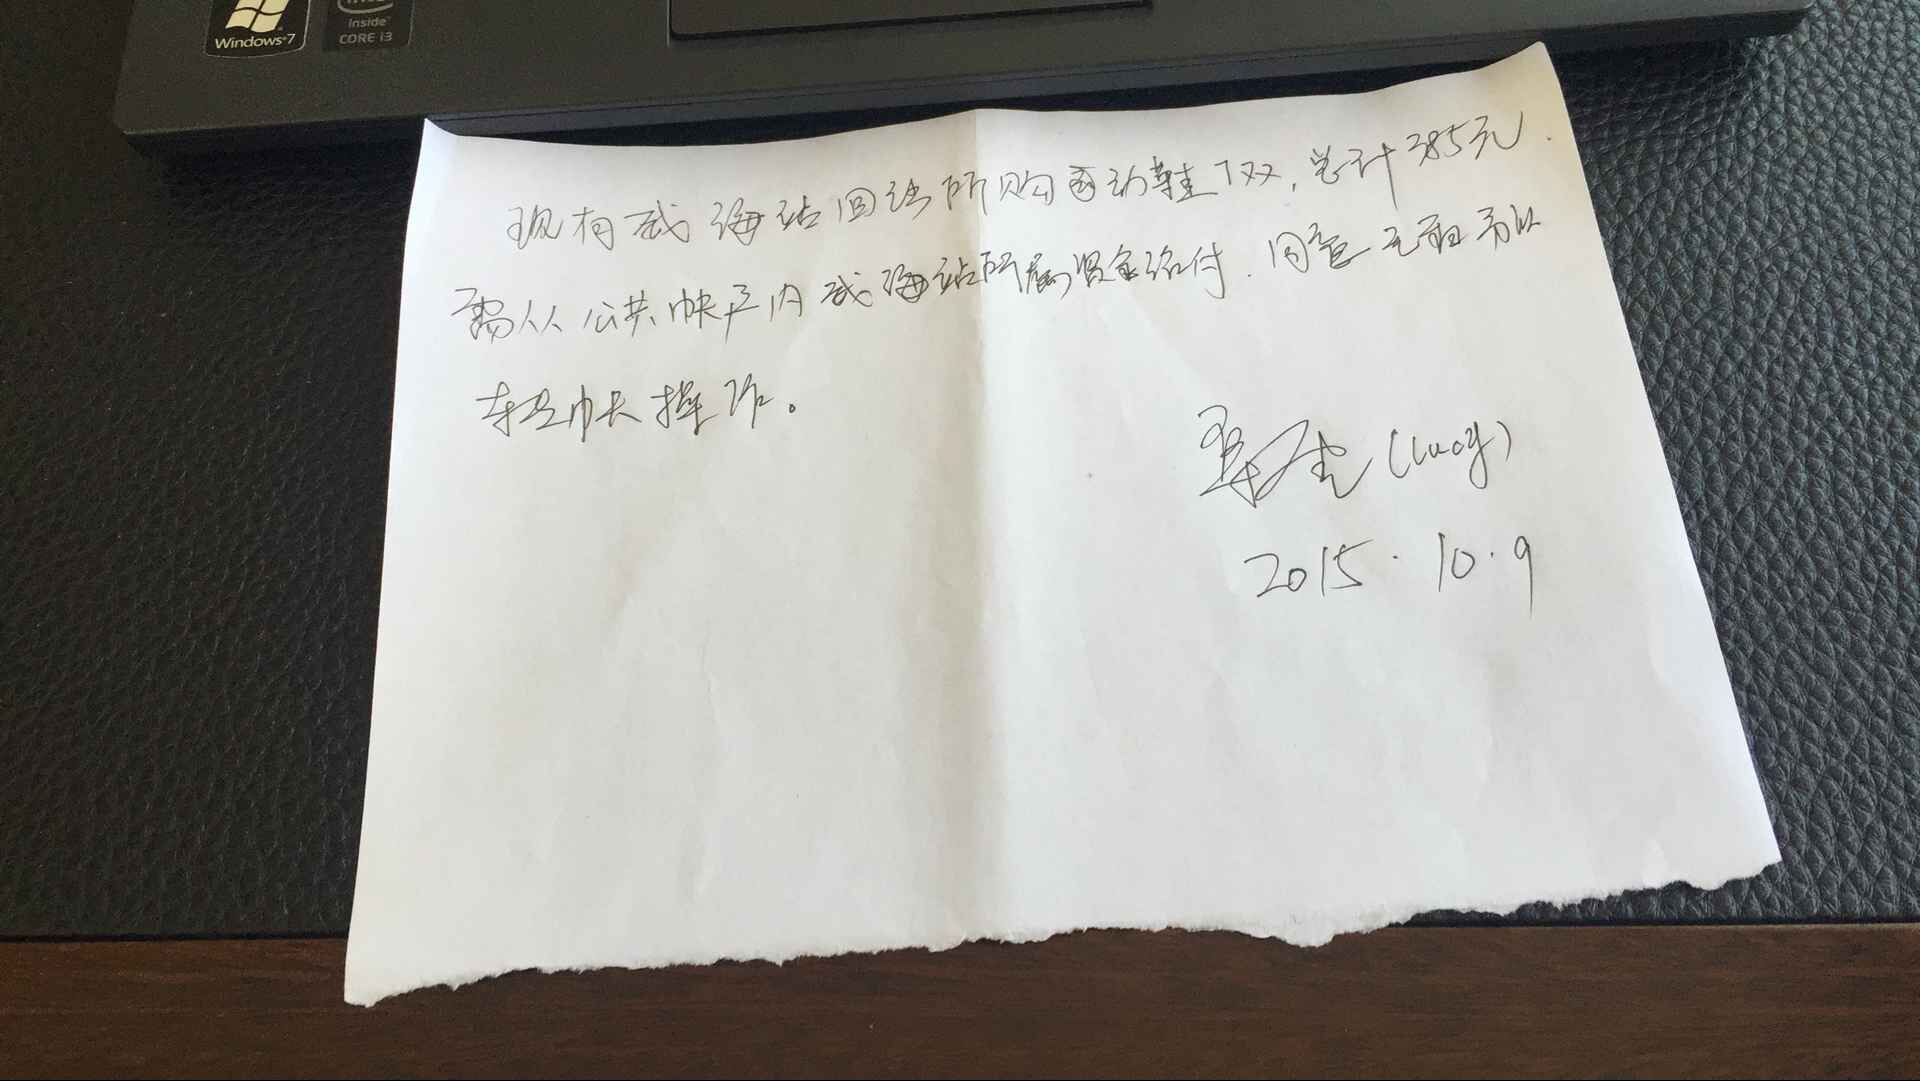 Windows 7
Inside
CORE i3
现有威海站回访所购西门鞋7双,总计385元.
需从公共帐户内威海站所属资金给付.同意予以
转帐操作。
(lucy)
2015.10.9